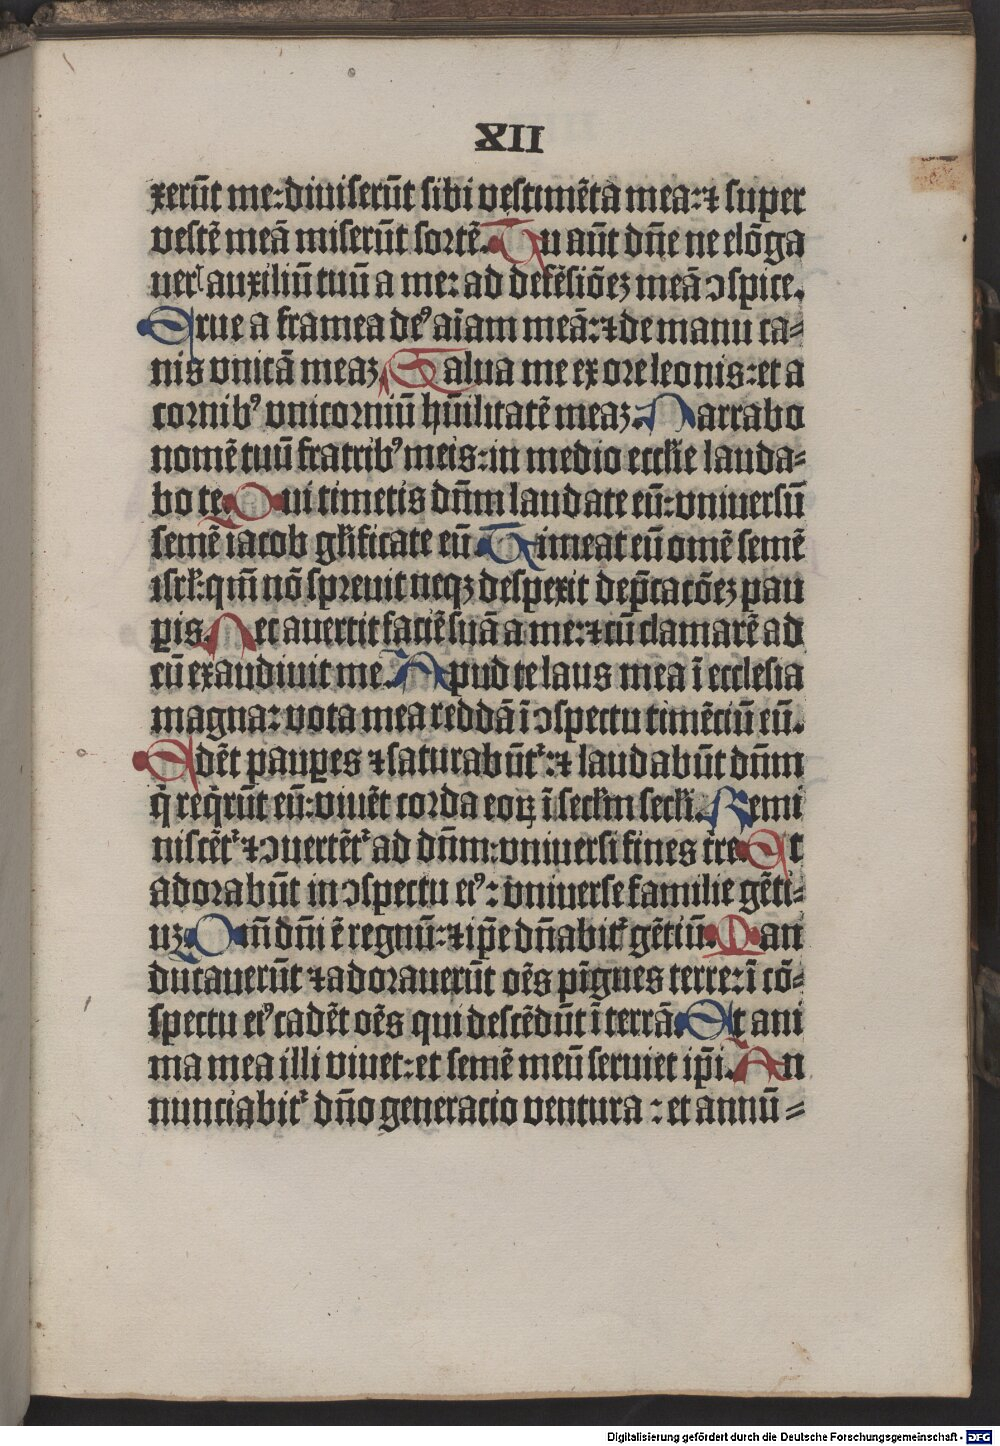 XII
xerūt me: diuiserūt sibi vestimēta mea: ⁊ super
vestē meā miserūt sortē. Tu aūt dn̄e ne elōga
uerꝭ auxiliū tuū a me: ad defēsiōeꝫ meā ↄspice.
Erue a framea deꝰ aīam meā: ⁊ de manu ca⸗
nis vnicā meaꝫ. Salua me ex ore leonis: et a
cornibꝰ vnicorniū hūilitatē meaꝫ. Narrabo
nomē tuū fratribꝰ meis: in medio ecclīe lauda⸗
bo te. Qui timetis dn̄m laudate eū: vniuersū
semē iacob gl̄ificate eū. Timeat eū omē semē
isrl̄: qm̄ nō spreuit neqꝫ despexit dep̄cacōeꝫ pau
ꝑis. Nec auertit faciē suā a me: ⁊ cū clamarē ad
eū exaudiuit me. Apud te laus mea ī ecclesia
magna: vota mea reddā ī ↄspectu timēciū eū.
Edēt pauꝑes ⁊ saturabūt᷑: ⁊ laudabūt dn̄m
q̄ reqͥrūt eū: viuēt corda eoꝝ ī secl̄m secl̄i. Remi
niscēt᷑ ⁊ ↄuertēt᷑ ad dn̄m: vniuersi fines t̄re. Et
adorabūt in ↄspectu eiꝰ: vniuerse familie gēti⸗
uꝫ. Qm̄ dn̄i ē regnū: ⁊ ip̄e dn̄abit᷑ gētiū. Man
ducauerūt ⁊ adorauerūt oēs pīgues terre: ī cō⸗
spectu eiꝰ cadēt oēs qui descēdūt ī terrā. Et ani
ma mea illi viuet: et semē meū seruiet ip̄i. An
nunciabit᷑ dn̄o generacio ventura: et annū⸗
Digitalisierung gefördert durch die Deutsche Forschungsgemeinschaft - DFG